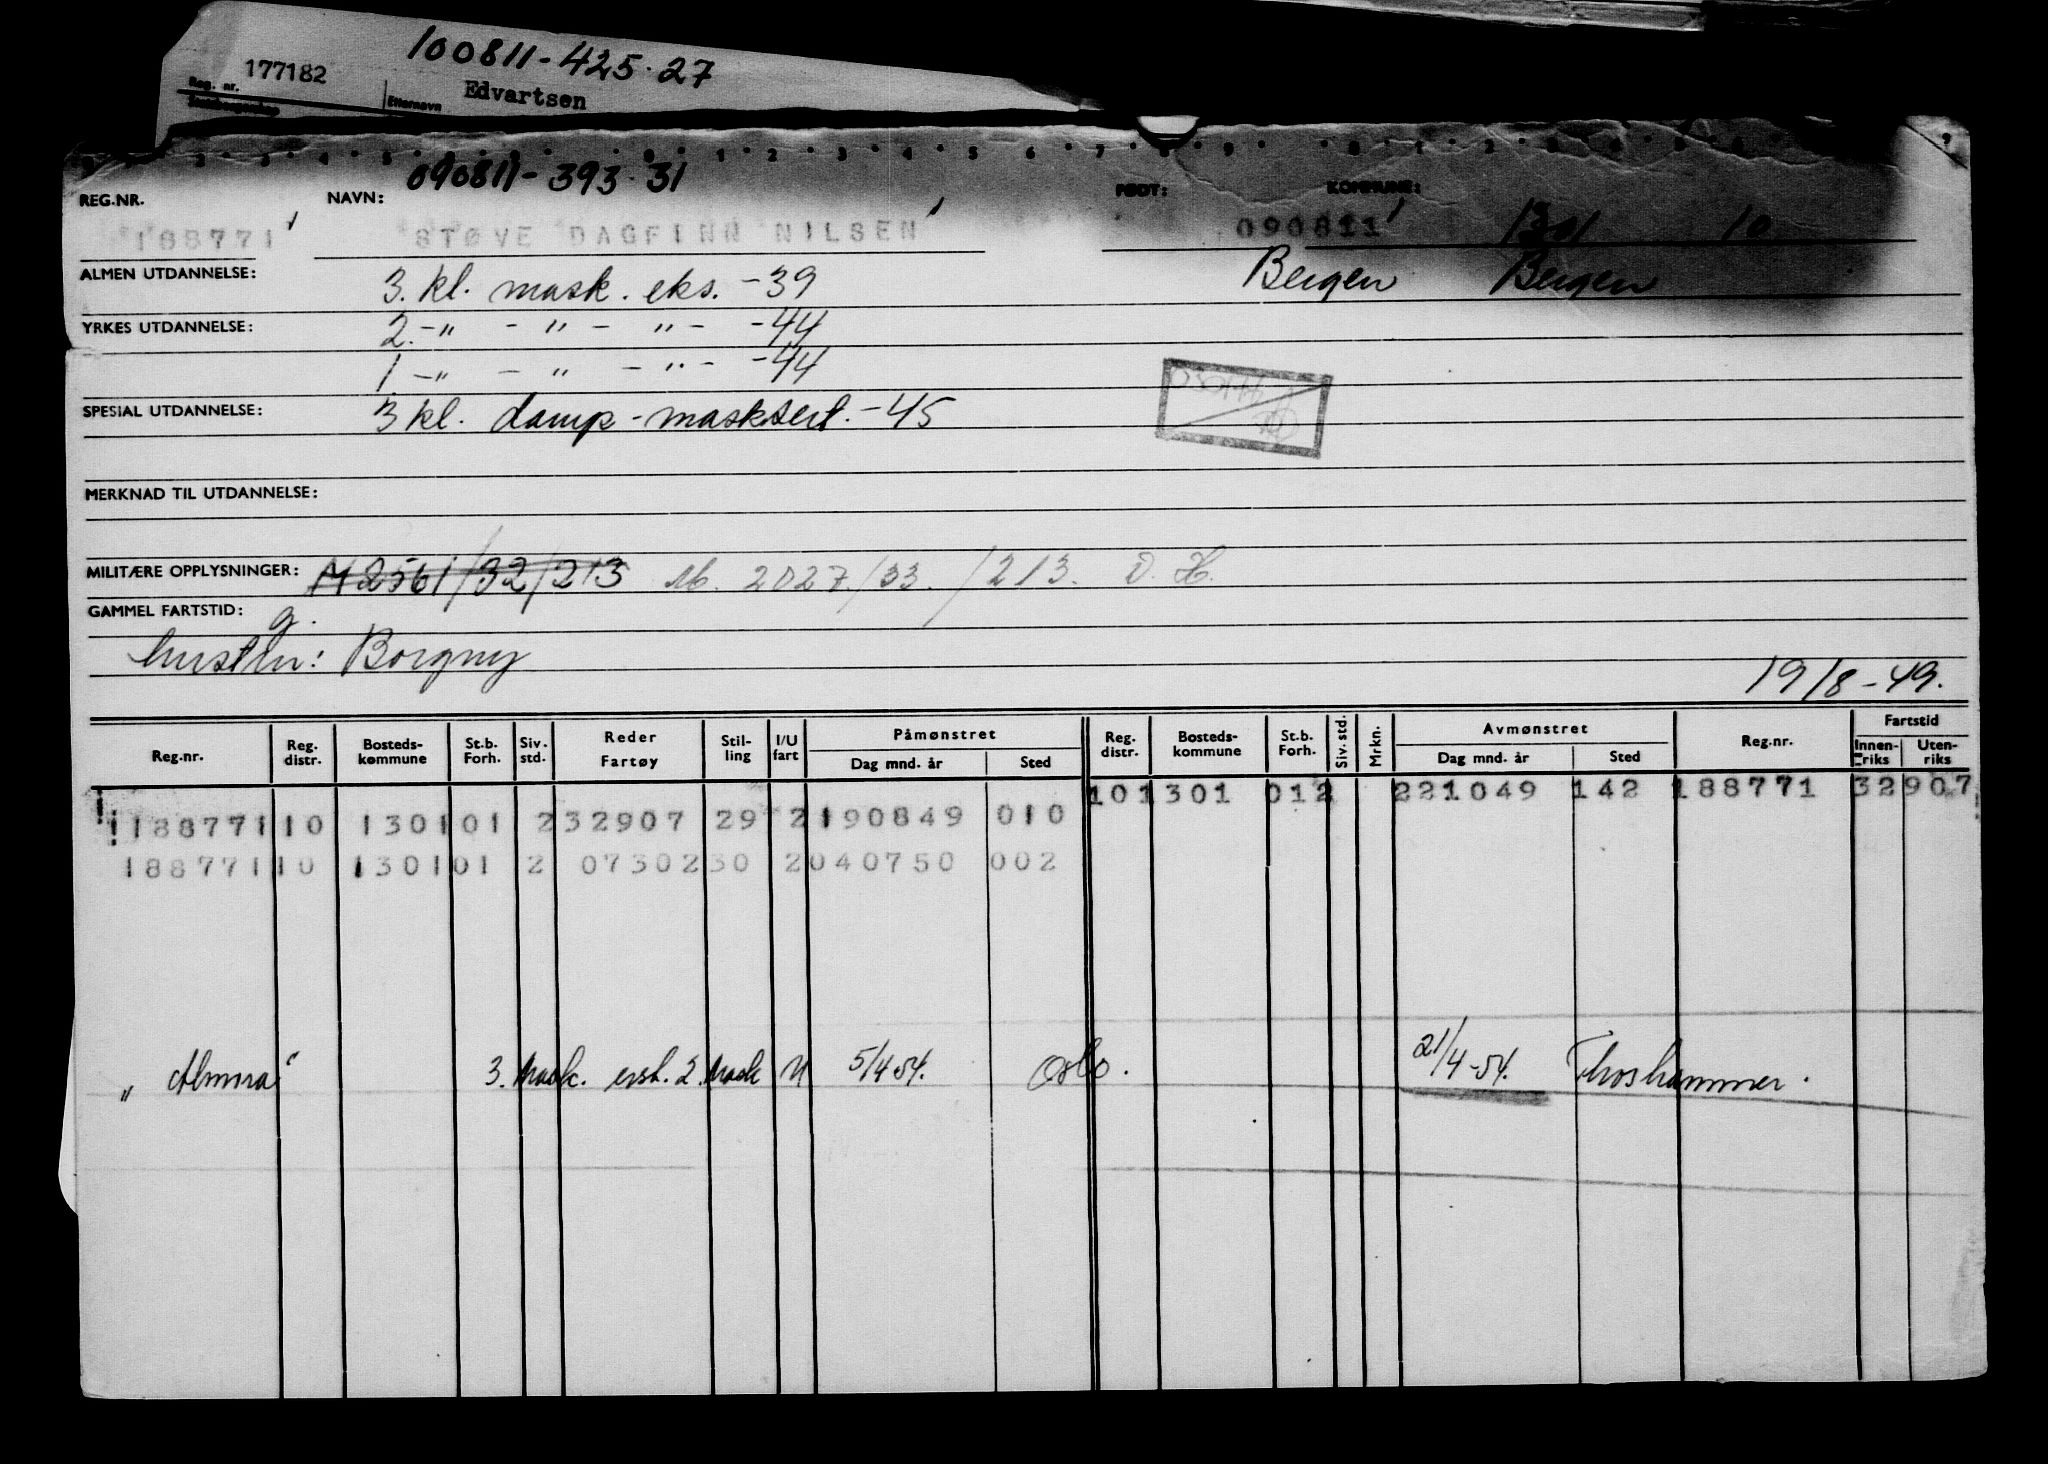 100811-425.27
177182
Reg. nr.
Etternavn
Edvartsen
090811-393.31
REG.NR.
NAVN:
FØDT:
KOMMUNE:
188771
STØVE DAGFINN NILSEN
090811
1301
10
ALMEN UTDANNELSE:
3. kl. mask. eks. -39
Bergen
Bergen
YRKES UTDANNELSE:
2 -"- -"- -"- -44
1 -"- -"- -"- -44
SPESIAL UTDANNELSE:
3 kl. damp-masksert. -45
MERKNAD TIL UTDANNELSE:
MILITÆRE OPPLYSNINGER:
M 2561/32/213 M. 2027/33. /213. D. H.
GAMMEL FARTSTID:
g.
hustru: Borgny
19/8-49.
Reg.nr.
Reg. distr.
Bosteds-kommune
St.b. Forh.
Siv. std.
Reder
Fartøy
Stil-ling
I/U fart
Påmønstret
Dag mnd. år
Sted
Reg. distr.
Bosteds-kommune
St.b. Forh.
Siv. std.
Mrkn.
Avmønstret
Dag mnd. år
Sted
Reg.nr.
Fartstid
Innen-riks
Uten-riks
101301 012 221049 142 188771 32907
188771 10 1301 01 2 32907 29 2 190849 010
188771 10 1301 01 2 07302 30 2 040750 002
"Almora" 3. Mask. 2. Mask U 5/4 54. Oslo. 21/4-54. Thoshammer.